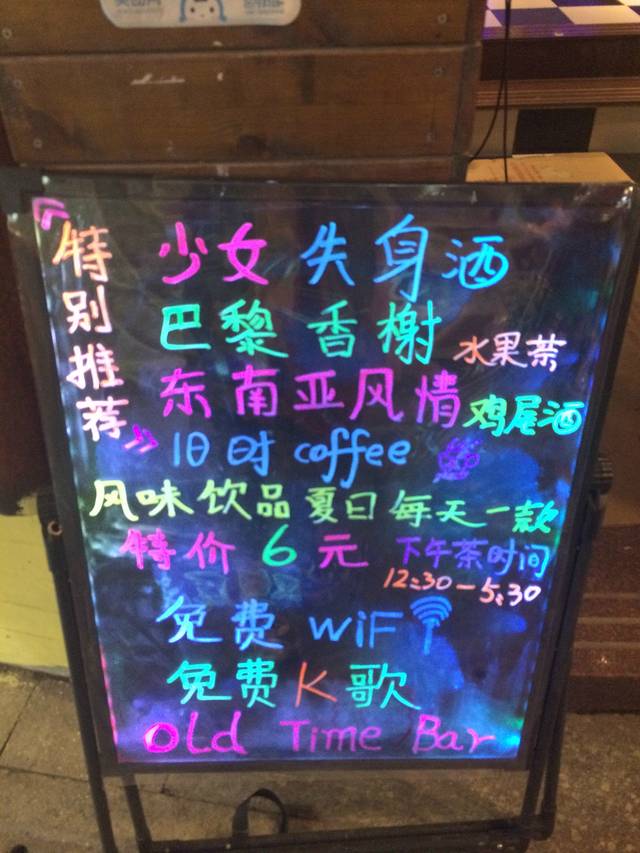 《特别推荐》
少女失身酒
巴黎香榭 水果茶
东南亚风情鸡尾酒
旧时 coffee
风味饮品 夏日每天一款
特价 6 元 下午茶时间
12:30-5:30
免费 WiFi
免费 K 歌
Old Time Bar